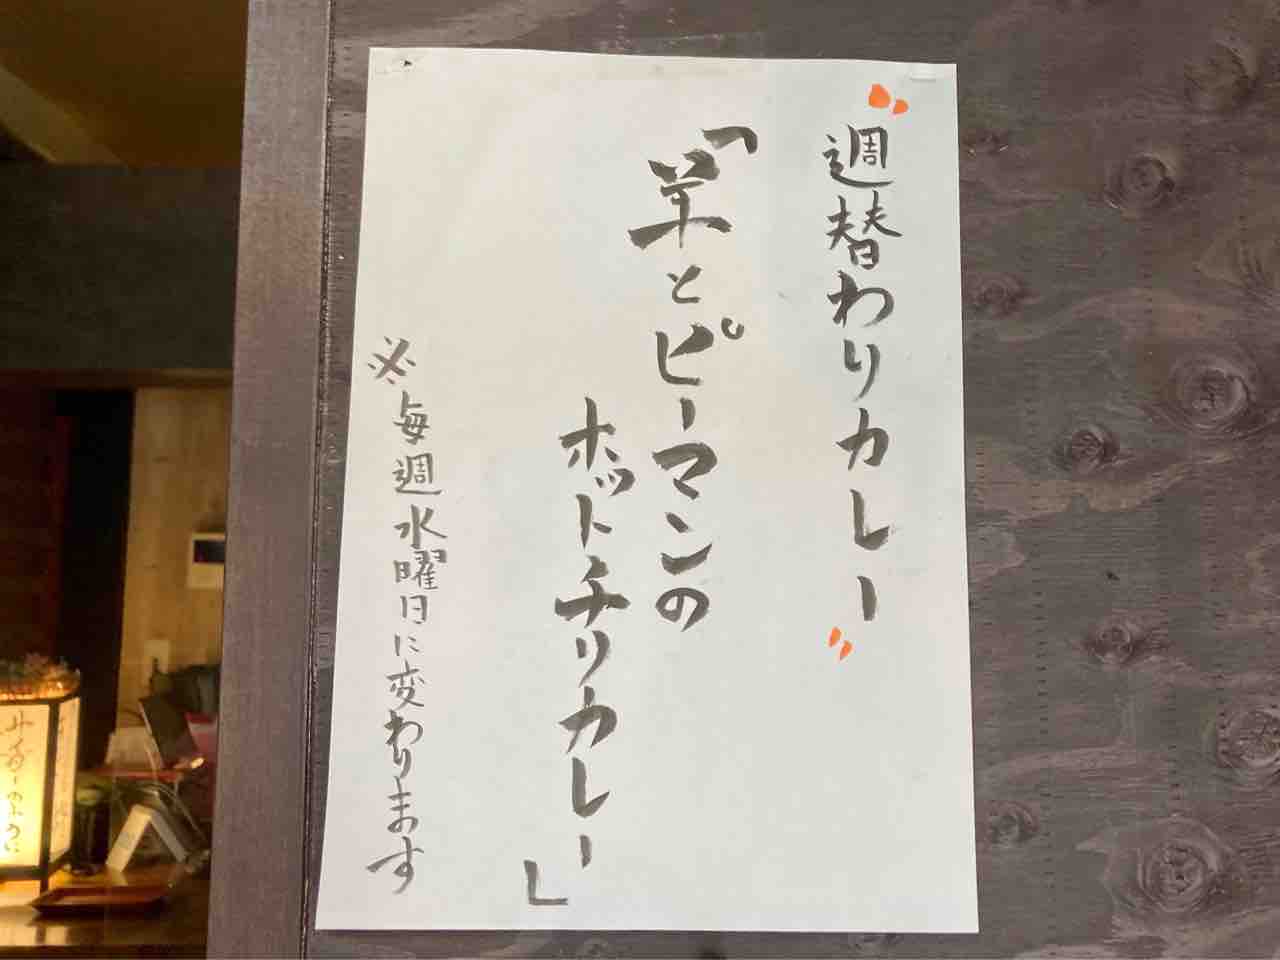 〝週替わりカレー〟
「羊とピーマンの
ホットチリカレー」
※毎週水曜日に変わります